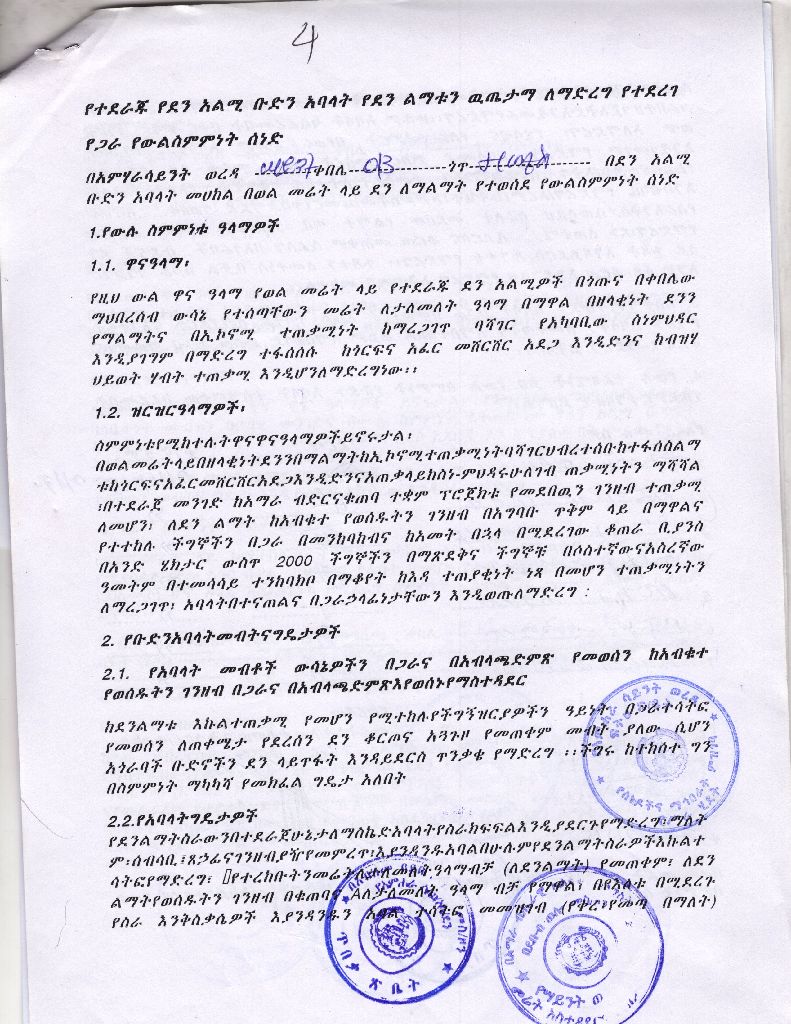 4
የተደራጁ የደን አልሚ ቡድን አባላት የደን ልማቱን ዉጤታማ ለማድረግ የተደረገ
የጋራ የውልስምምነት ሰነድ
በአምሃራሳይንት ወረዳ ቀበሌ 013 ጎጥ በደን አልሚ
ቡድን አባላት መሀከል በወል መሬት ላይ ደን ለማልማት የተወሰደ የውልስምምነት ሰነድ
1.የውሉ ስምምነቱ ዓላማዎች
1.1. ዋናዓላማ፡
የዚህ ውል ዋና ዓላማ የወል መሬት ላይ የተደራጁ ደን አልሚዎች በጎጡና በቀበሌው
ማህበረሰብ ውሳኔ የተሰጣቸውን መሬት ለታለመለት ዓላማ በማዋል በዘላቂነት ደንን
የማልማትና በኢኮኖሚ ተጠቃሚነት ከማረጋገጥ ባሻገር የአካባቢው ስነምህዳር
እንዲያገግም በማድረግ ተፋሰሰሱ ከጎርፍና አፈር መሸርሸር አደጋ እንዲድንና ከብዝሃ
ህይወት ሃብት ተጠቃሚ እንዲሆንለማድረግነው፡፡
1.2. ዝርዝርዓላማዎች፡
ስምምነቱየሚከተሉትዋናዋናዓላማዎችይኖሩታል፡
በወልመሬትላይበዘላቂነትደንንበማልማትከኢኮኖሚተጠቃሚነትባሻገርህብረተሰቡከተፋሰስልማ
ቱከጎርፍናአፈርመሸርሸርአደጋእንዲድንናአጠቃላይከስነ-ምህዳሩሁለገብ ጠቃሚነትን ማሻሻል
፣በተደራጀ መንገድ ከአማራ ብድርናቁጠባ ተቋም ፕሮጀክቱ የመደበዉን ገንዘብ ተጠቃሚ
ለመሆን፣ ለደን ልማት ከአብቁተ የወሰዱትን ገንዘብ በአግባቡ ጥቅም ላይ በማዋልና
የተተከሉ ችግኞችን በጋራ በመንከባከብና ከአመት በኋላ በሚደረገው ቆጠራ ቢያንስ
በአንድ ሄክታር ውስጥ 2000 ችግኞችን በማጽደቅና ችግኞቹ በሶስተኛውናአስረኛው
ዓመትም በተመሳሳይ ተንከባክቦ በማቆየት ከእዳ ተጠያቂነት ነጻ በመሆን ተጠቃሚነትን
ለማረጋገጥ፣ አባላትበተናጠልና በጋራኃላፊነታቸውን እንዲወጡለማድረግ ፡
2. የቡድንአባላትመብትናግዴታዎች
2.1. የአባላት መብቶች ውሳኔዎችን በጋራና በአብላጫድምጽ የመወሰን ከአብቁተ
የወሰዱትን ገንዘብ በጋራና በአብላጫድምጽእየወሰኑየማስተዳደር
ከደንልማቱ እኩልተጠቃሚ የመሆን የሚተከሉየችግኝዝርያዎችን ዓይነት በጋራትሳትፎ
የመወሰን ለጠቀሜታ የደረሰን ደን ቆርጦና አጓጉዞ የመጠቀም መብት ያለው ሲሆን
አጎራባች ቡድኖችን ደን ላይጥፋት እንዳይደርስ ጥንቃቄ የማድረግ ፡፡ችግሩ ከተከሰተ ግን
በስምምነት ማካካሻ የመክፈል ግዴታ አለበት
2.2.የአባላትግዴታዎች
የደንልማትስራውንበተደራጀሁኔታለማስኬድአባላትየስራክፍፍልእንዲያደርጉየማድረግ፣ማለት
ም፡ሰብሳቢ፣ጸኃፊናገንዘብያዥየመምረጥ፣እያንዳንዱአባልበሁሉምየደንልማትስራዎችእኩልተ
ሳትፎየማድረግ፣ የተረከቡትንመሬትለታለመለትዓላማብቻ (ለደንልማት) የመጠቀም፣ ለደን
ልማትየወሰዱትን ገንዘብ በቁጠባና Aለታለመለት ዓላማ ብቻ የማዋል፣ በየእለቱ በሚደረጉ
የስራ እንቅስቃሴዎች እያንዳንዱን አባል ተሳትፎ መመዝገብ (የቀረ፣የመጣ በማለት)
ጥበቃ ጽ ቤት